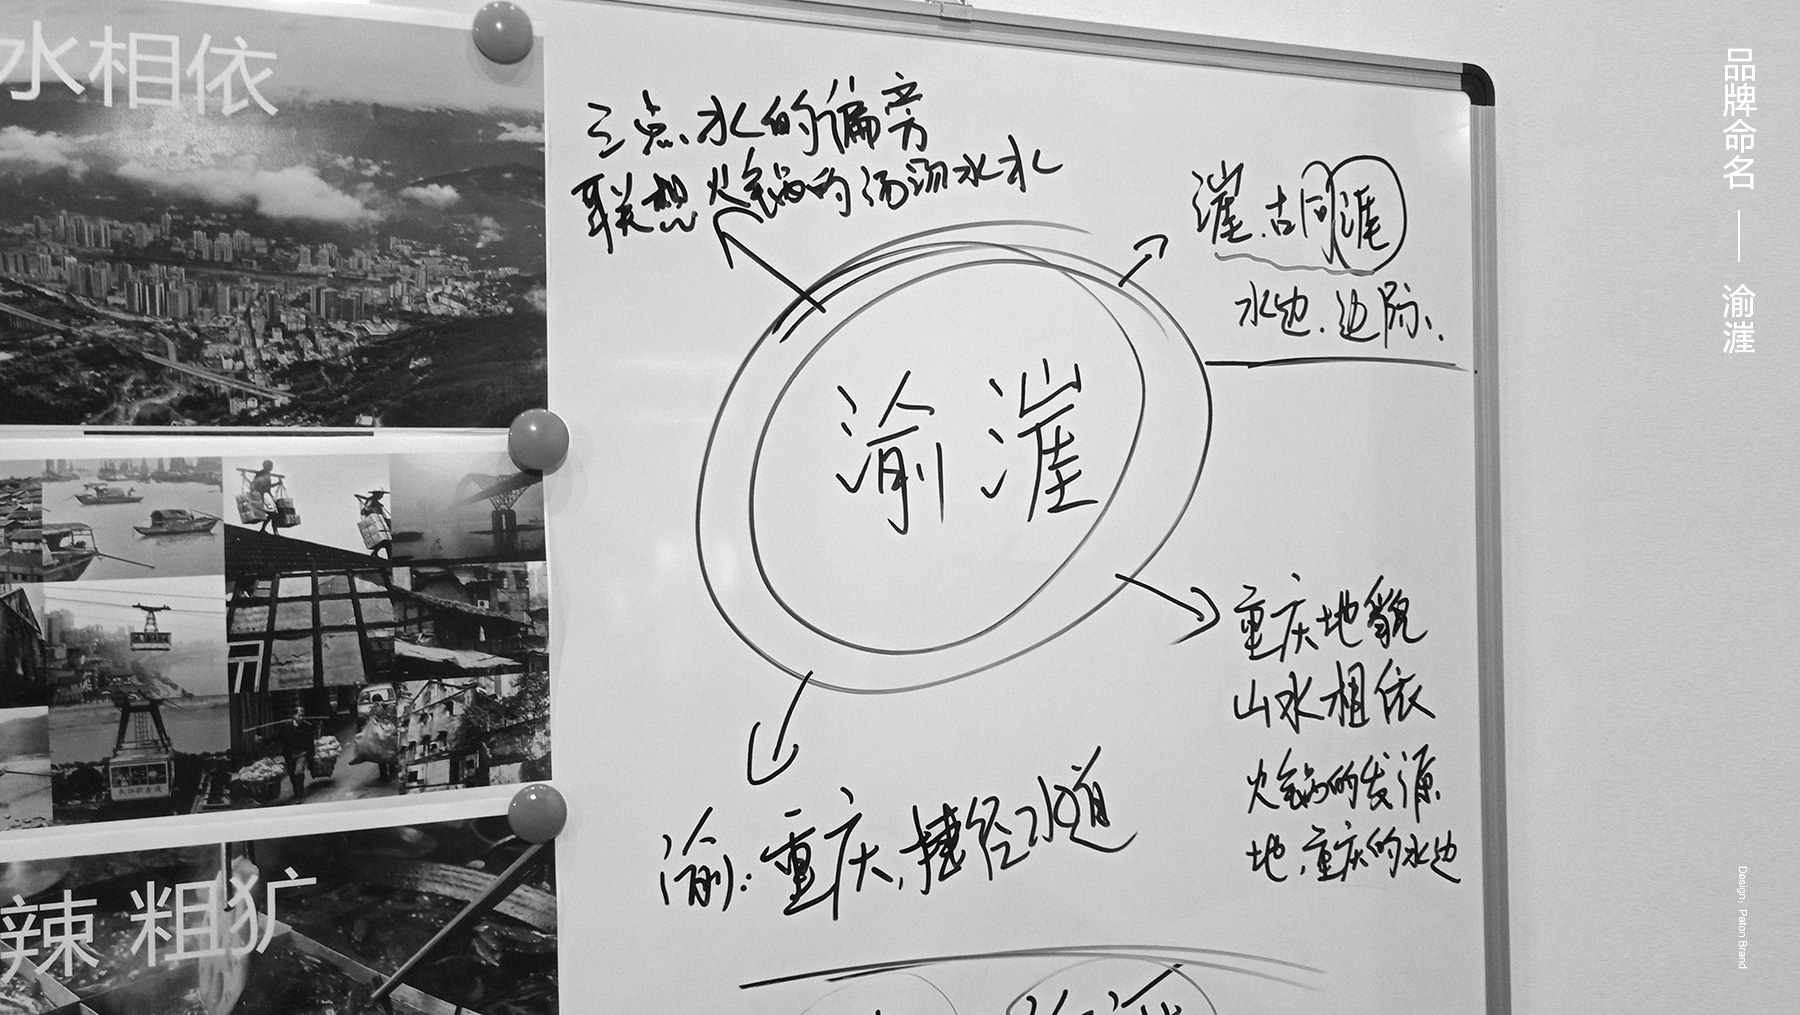 水相依
三点水的偏旁
联想火锅的汤汤水水
漄.古同涯
水边.边际.
渝漄
重庆地貌
山水相依
火锅的发源
地.重庆的水边
渝:重庆,捷径水道
辣 粗犷
品牌命名 — 渝漄
Design: Paton Brand